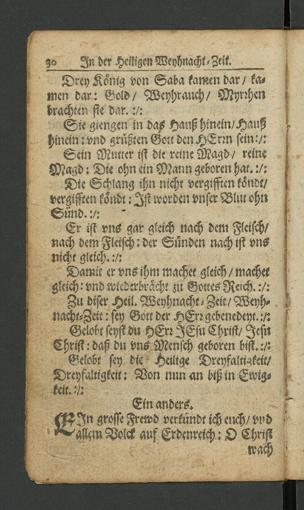 30 In der Heiligen Weyhnacht-Zeit.
Drey König von Saba kamen dar/ ka-
men dar: Gold/ Weyhrauch/ Myrrhen
brachten sie dar. :/:
Sie giengen in das Hauß hinein/ Hauß
hinein: vnd grüßten Gott den HErrn sein:/:
Sein Mutter ist die reine Magd/ reine
Magd: Die ohn ein Mann geboren hat. :/:
Die Schlang ihn nicht vergifften köndt/
vergifften köndt: Ist worden vnser Blut ohn
Sünd. :/:
Er ist vns gar gleich nach dem Fleisch/
nach dem Fleisch: der Sünden nach ist vns
nicht gleich. :/:
Damit er vns ihm machet gleich/ machet
gleich: vnd wiederbrächt zu Gottes Reich. :/:
Zu diser Heil. Weyhnacht-Zeit/ Weyh-
nacht-Zeit: sey Gott der HErr gebenedeyt. :/:
Gelobt seyst du HErr JEsu Christ/ Jesu
Christ: daß du vns Mensch geboren bist. :/:
Gelobt sey die Heilige Dreyfaltigkeit/
Dreyfaltigkeit: Von nun an biß in Ewig-
keit. :/:
Ein anders.
EIn grosse Frewd verkündt ich euch/ vnd
allem Volck auf Erdenreich: O Christ
wach